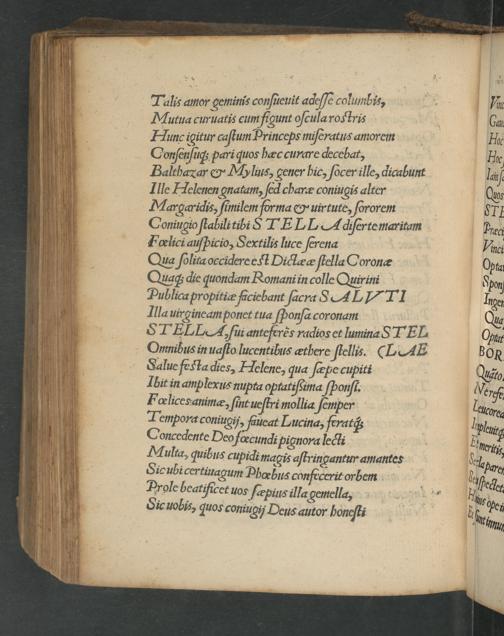 Talis amor geminis consueuit adesse columbis,
Mutua curuatis cum figunt oscula rostris
Hunc igitur castum Princeps miseratus amorem
Consensuq́; pari quos hæc curare decebat,
Balthazar & Mylius, gener hic, socer ille, dicabunt
Ille Helenen gnatam, sed charæ coniugis alter
Margaridis, similem forma & uirtute, sororem
Coniugio stabili tibi STELLA diserte maritam
Fœlici auspicio, Sextilis luce serena
Qua solita occidere est Dictææ stella Coronæ
Quaq́; die quondam Romani in colle Quirini
Publica propitiæ faciebant sacra SALVTI
Illa uirgineam ponet tua sponsa coronam
STELLA, sui anteferès radios et lumina STEL
Omnibus in uasto lucentibus æthere stellis. (LAE
Salue festa dies, Helene, qua sæpe cupiti
Ibit in amplexus nupta optatissima sponsi.
Fœlices animæ, sint uestri mollia semper
Tempora coniugij, faueat Lucina, feratq́;
Concedente Deo fœcundi pignora lecti
Multa, quibus cupidi magis astringantur amantes
Sic ubi certiuagum Phœbus confecerit orbem
Prole beatificet uos sæpius illa gemella,
Sic uobis, quos coniugij Deus autor honesti
Vinc
Gau
Hoc
Hoc
Quos
STE
Præci
Vinci
Opta
Spons
Ingen
Qua
Optat
BOR
Quāto
Ne refe
Leucorea
Impleuit
Et meritis,